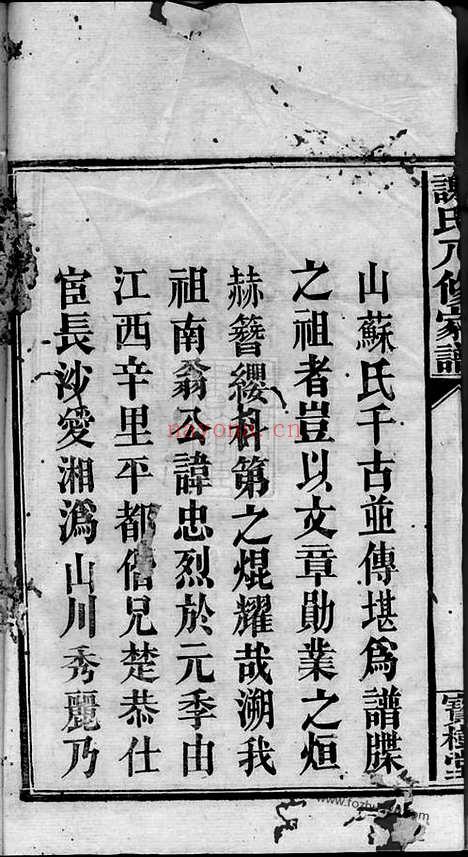 謝氏八修家譜
寶樹堂
山蘇氏千古並傳堪爲譜牒
之祖者豈以文章勛業之烜
赫簪纓科第之焜耀哉溯我
祖南翁公諱忠烈於元季由
江西辛里平都偕兄楚恭仕
宦長沙愛湘潙山川秀麗乃
nayona.cn
www.fozhu